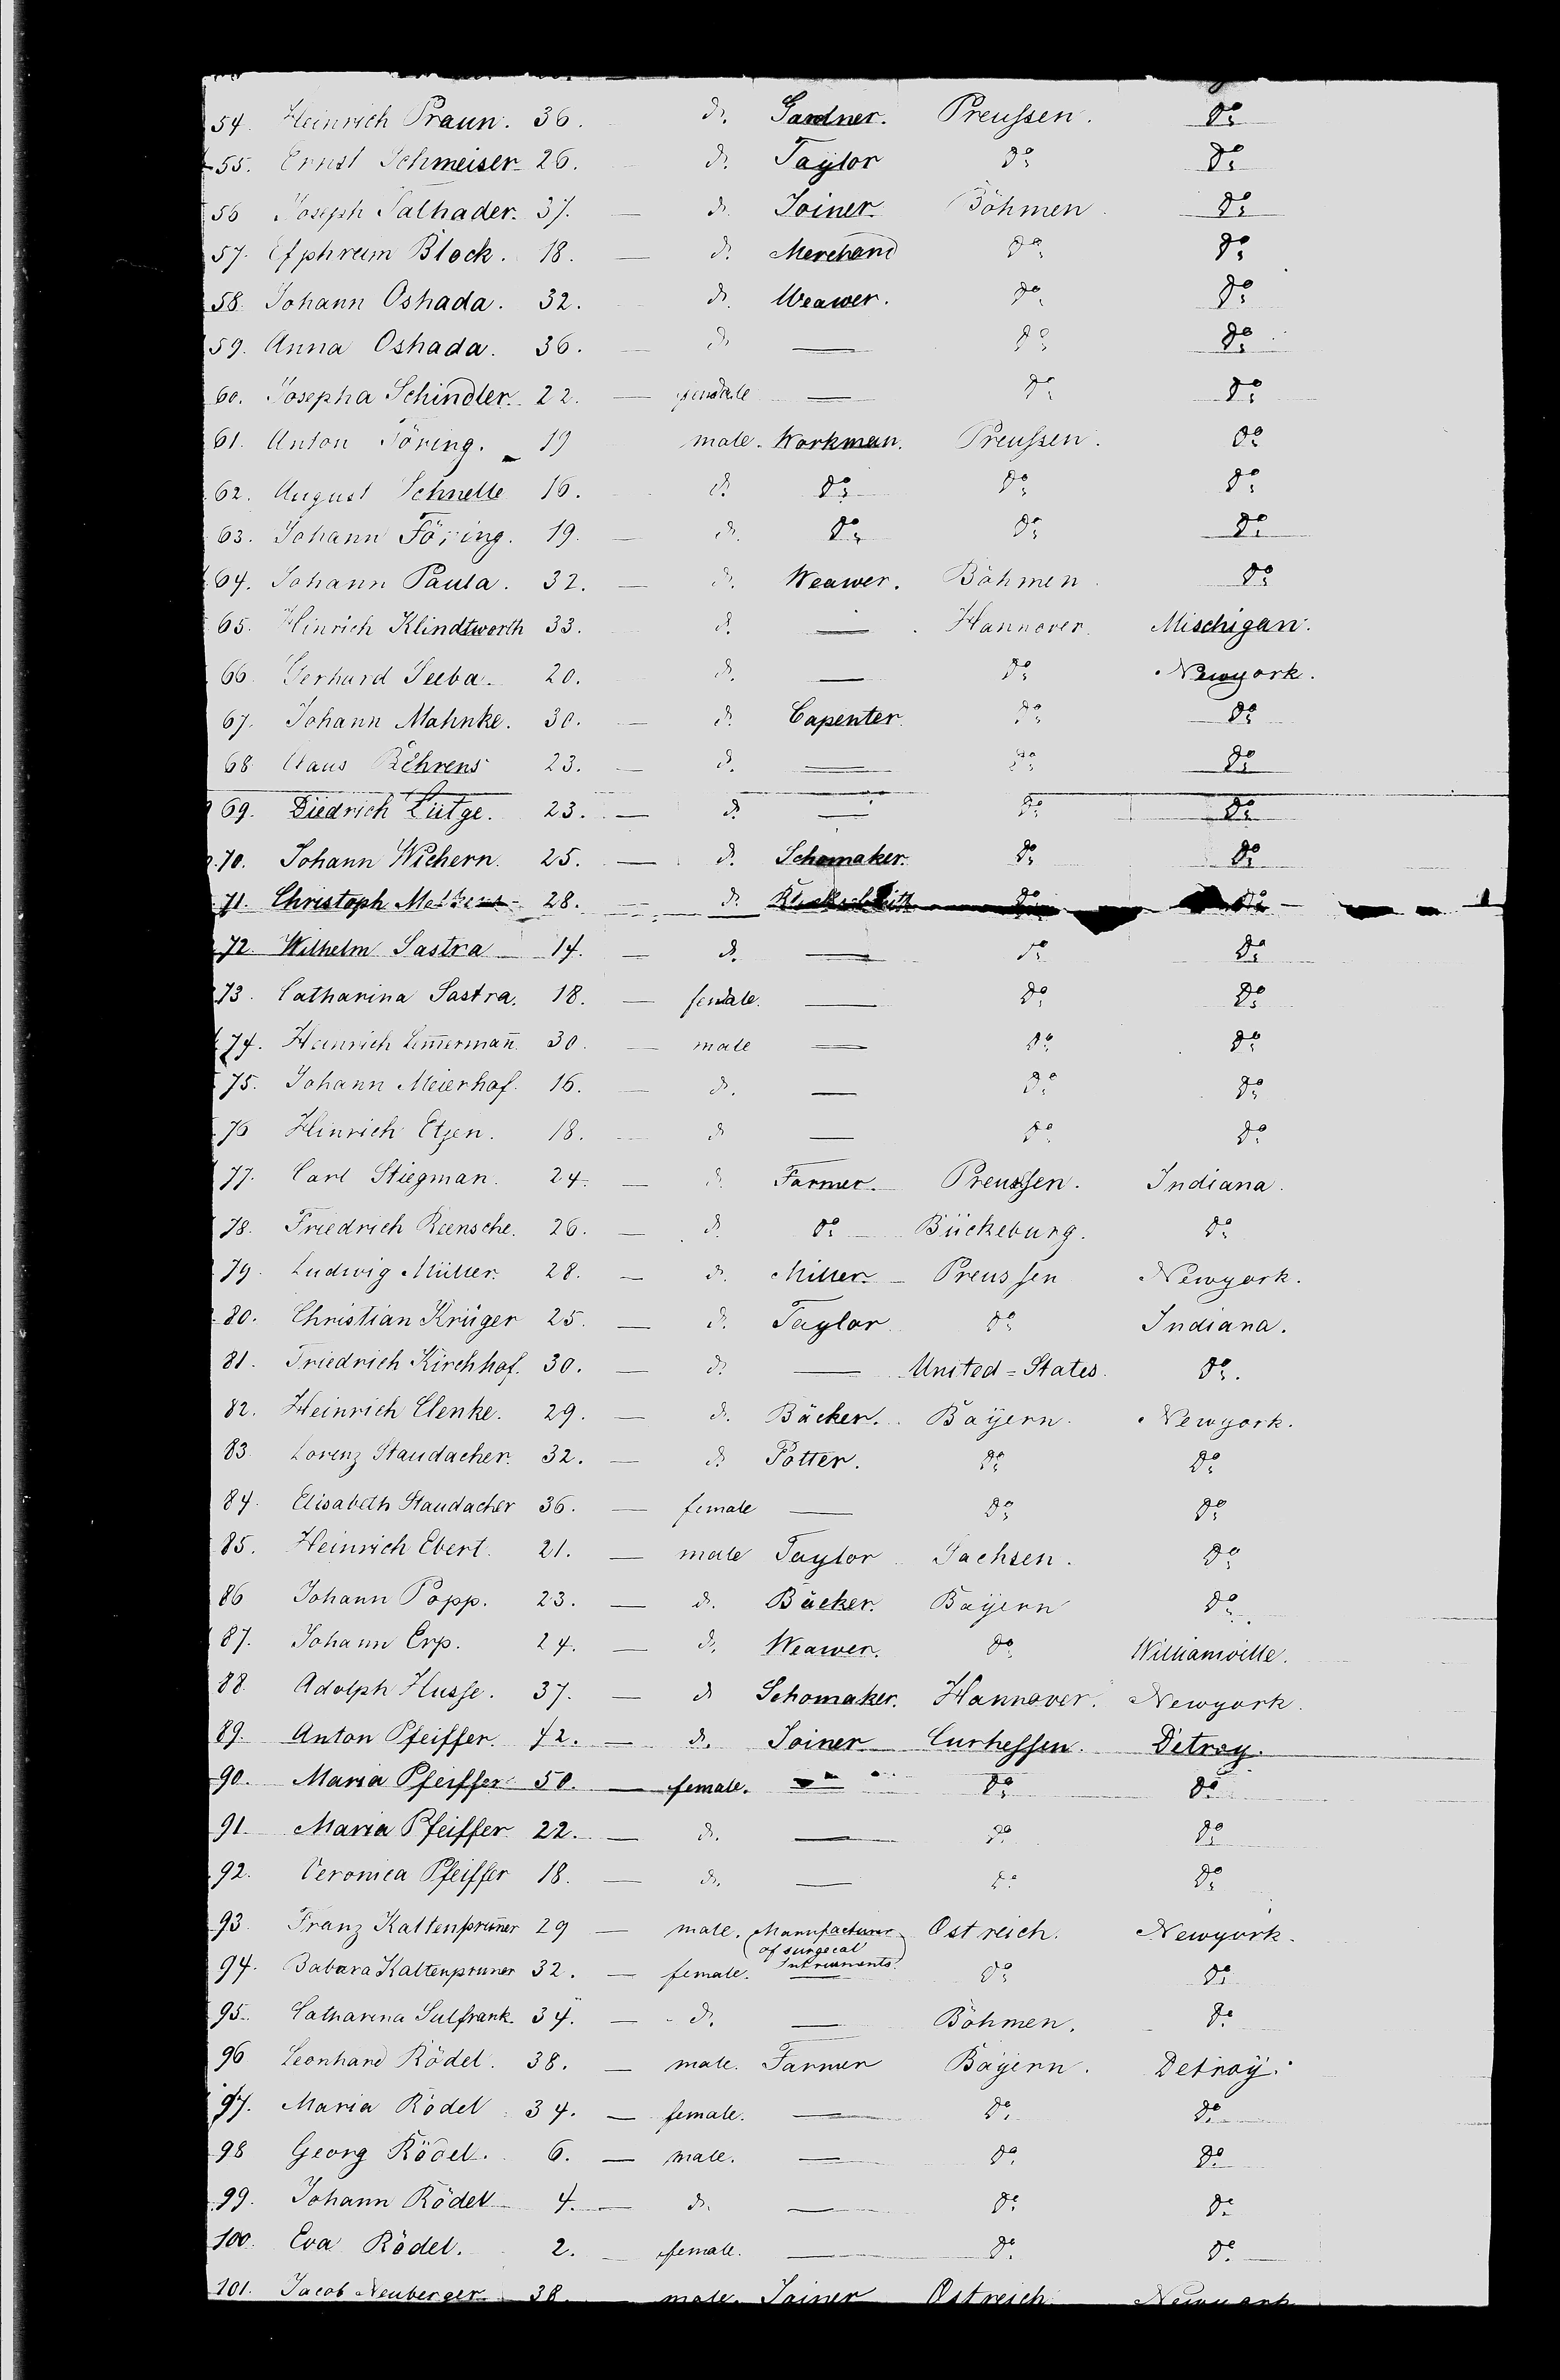 54. Heinrich Praun. 36. do. Gardner. Preussen. do
55. Ernst Schmeiser 26. do. Taylor do do
56 Joseph Talhader. 37. — do. Joiner. Böhmen. do
57. Efphreim Block. 18. — do. Merchand do do
58. Johann Oshada. 32. do. Weawer. do do
59. Anna Oshada. 36. — do — do do
60. Josepha Schindler. 22. — female — do do
61. Anton Töring. 19 male. Workman. Preussen. do
62. August Schnelle 16. do. do do do
63. Johann Föring. 19. — do. do do do
64. Johann Paula. 32. — do. Weawer. Böhmen. do
65. Hinrich Klindtworth 33. do. — Hannover. Mischigan.
66. Gerhard Seeba. 20. do. — do Newyork.
67. Johann Mahnke. 30. — do. Capenter do do
68. Claus Behrens 23. — do. — do do
69. Diedrich Lütge. 23. — do. — do do
70. Johann Wichern. 25. — do. Schomaker. do do
71. Christoph 28. — do. do do
72. Wilhelm Sastra 14. — do. — do do
73. Catharina Sastra. 18. — female. — do do
74. Heinrich Lim̄erman̄ 30. — male — do do
75. Johann Meierhof. 16. — do. — do do
76 Hinrich Etzen. 18. — do — do do
77. Carl Stiegman. 24. — do. Farmer. Preussen. Indiana.
78. Friedrich Reensche. 26. — do. do Bückeburg. do
79. Ludwig Müller. 28. — do. Miller. Preussen Newyork.
80. Christian Krüger 25. — do. Taylor do Indiana.
81. Friedrich Kirchhof. 30. — do. — United=States. do.
82. Heinrich Clenke. 29. — do. Bäcker. Bayern. Newyork.
83. Lorenz Staudacher. 32. — do Potter. do do
84. Elisabeth Staudacher 36. — female — do do
85. Heinrich Ebert. 21. — male Taylor Sachsen. do
86 Johann Popp. 23. — do. Bäcker. Bayern do
87. Johann Erp. 24. — do. Weawer. do Williamville.
88. Adolph Husse. 37. — do Schomaker. Hannover. Newyork.
89. Anton Pfeiffer 42. — do. Joiner Curhessen. Detroy.
90. Maria Pfeiffer 50. — female. — do do
91. Maria Pfeiffer 22. — do. — do do
92. Veronica Pfeiffer 18. — do. — do do
93. Franz Kaltenprun̄er 29 — male. Manufacturer Ostreich. Newyork.
(of surgecal
Intruments.)
94. Babara Kaltenpruner 32. — female. — do do
95. Catharina Sulfrank. 34. — do. — Böhmen. do
96 Leonhard Rödel. 38. — male. Farmer Bayern. Detroy.
97. Maria Rödel 34. — female. — do. do
98 Georg Rödel. 6. — male. — do. do
99. Johann Rödel 4. — do. — do. do
100. Eva Rödel. 2. — female. — do. do.
101. Jacob Neuberger 38. male. Joiner Ostreich. Newyork